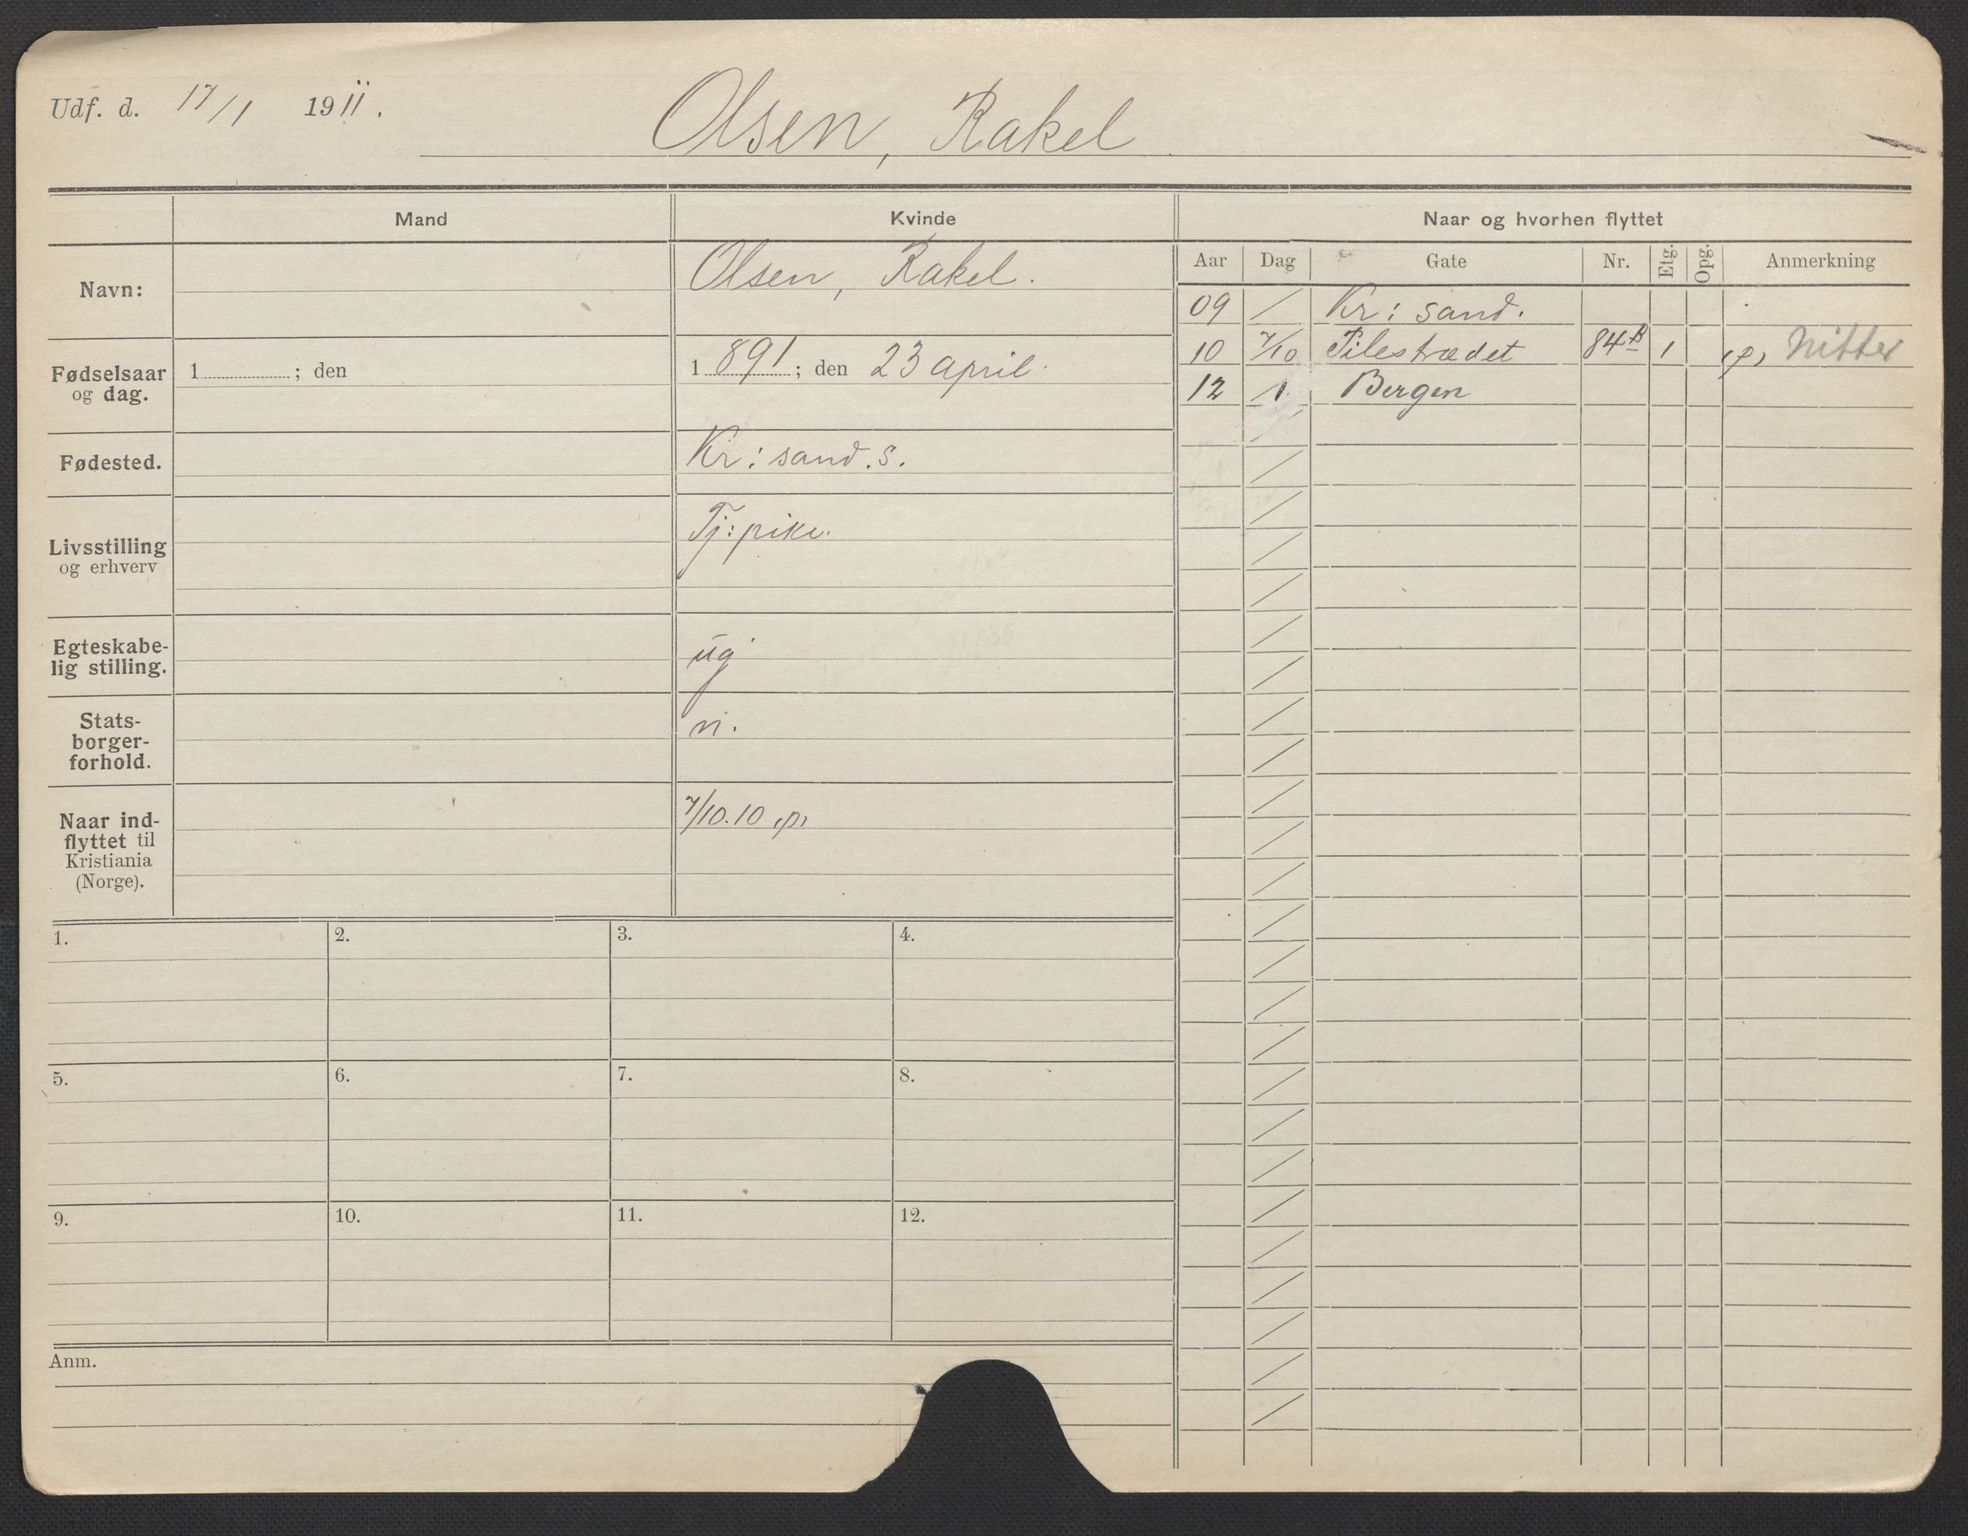 Udf. d. 17/1 1911.
Olsen, Rakel
Mand
Kvinde
Naar og hvorhen flyttet
Navn:
Olsen, Rakel.
Fødselsaar
og dag.
1 ; den
1 891 ; den 23 april.
Fødested.
Kr: sand. s.
Livsstilling
og erhverv
Tj: pike.
Egteskabe-
lig stilling.
ug
Stats-
borger-
forhold.
n.
Naar ind-
flyttet til
Kristiania
(Norge).
7/10.10 (p)
1. 2. 3. 4.
5. 6. 7. 8.
9. 10. 11. 12.
Anm.
Aar Dag Gate Nr. Etg. Opg. Anmerkning
09 / Kr: sand.
10 7/10 Pilestrædet 84B 1 (p) Nitter
12 /1 Bergen